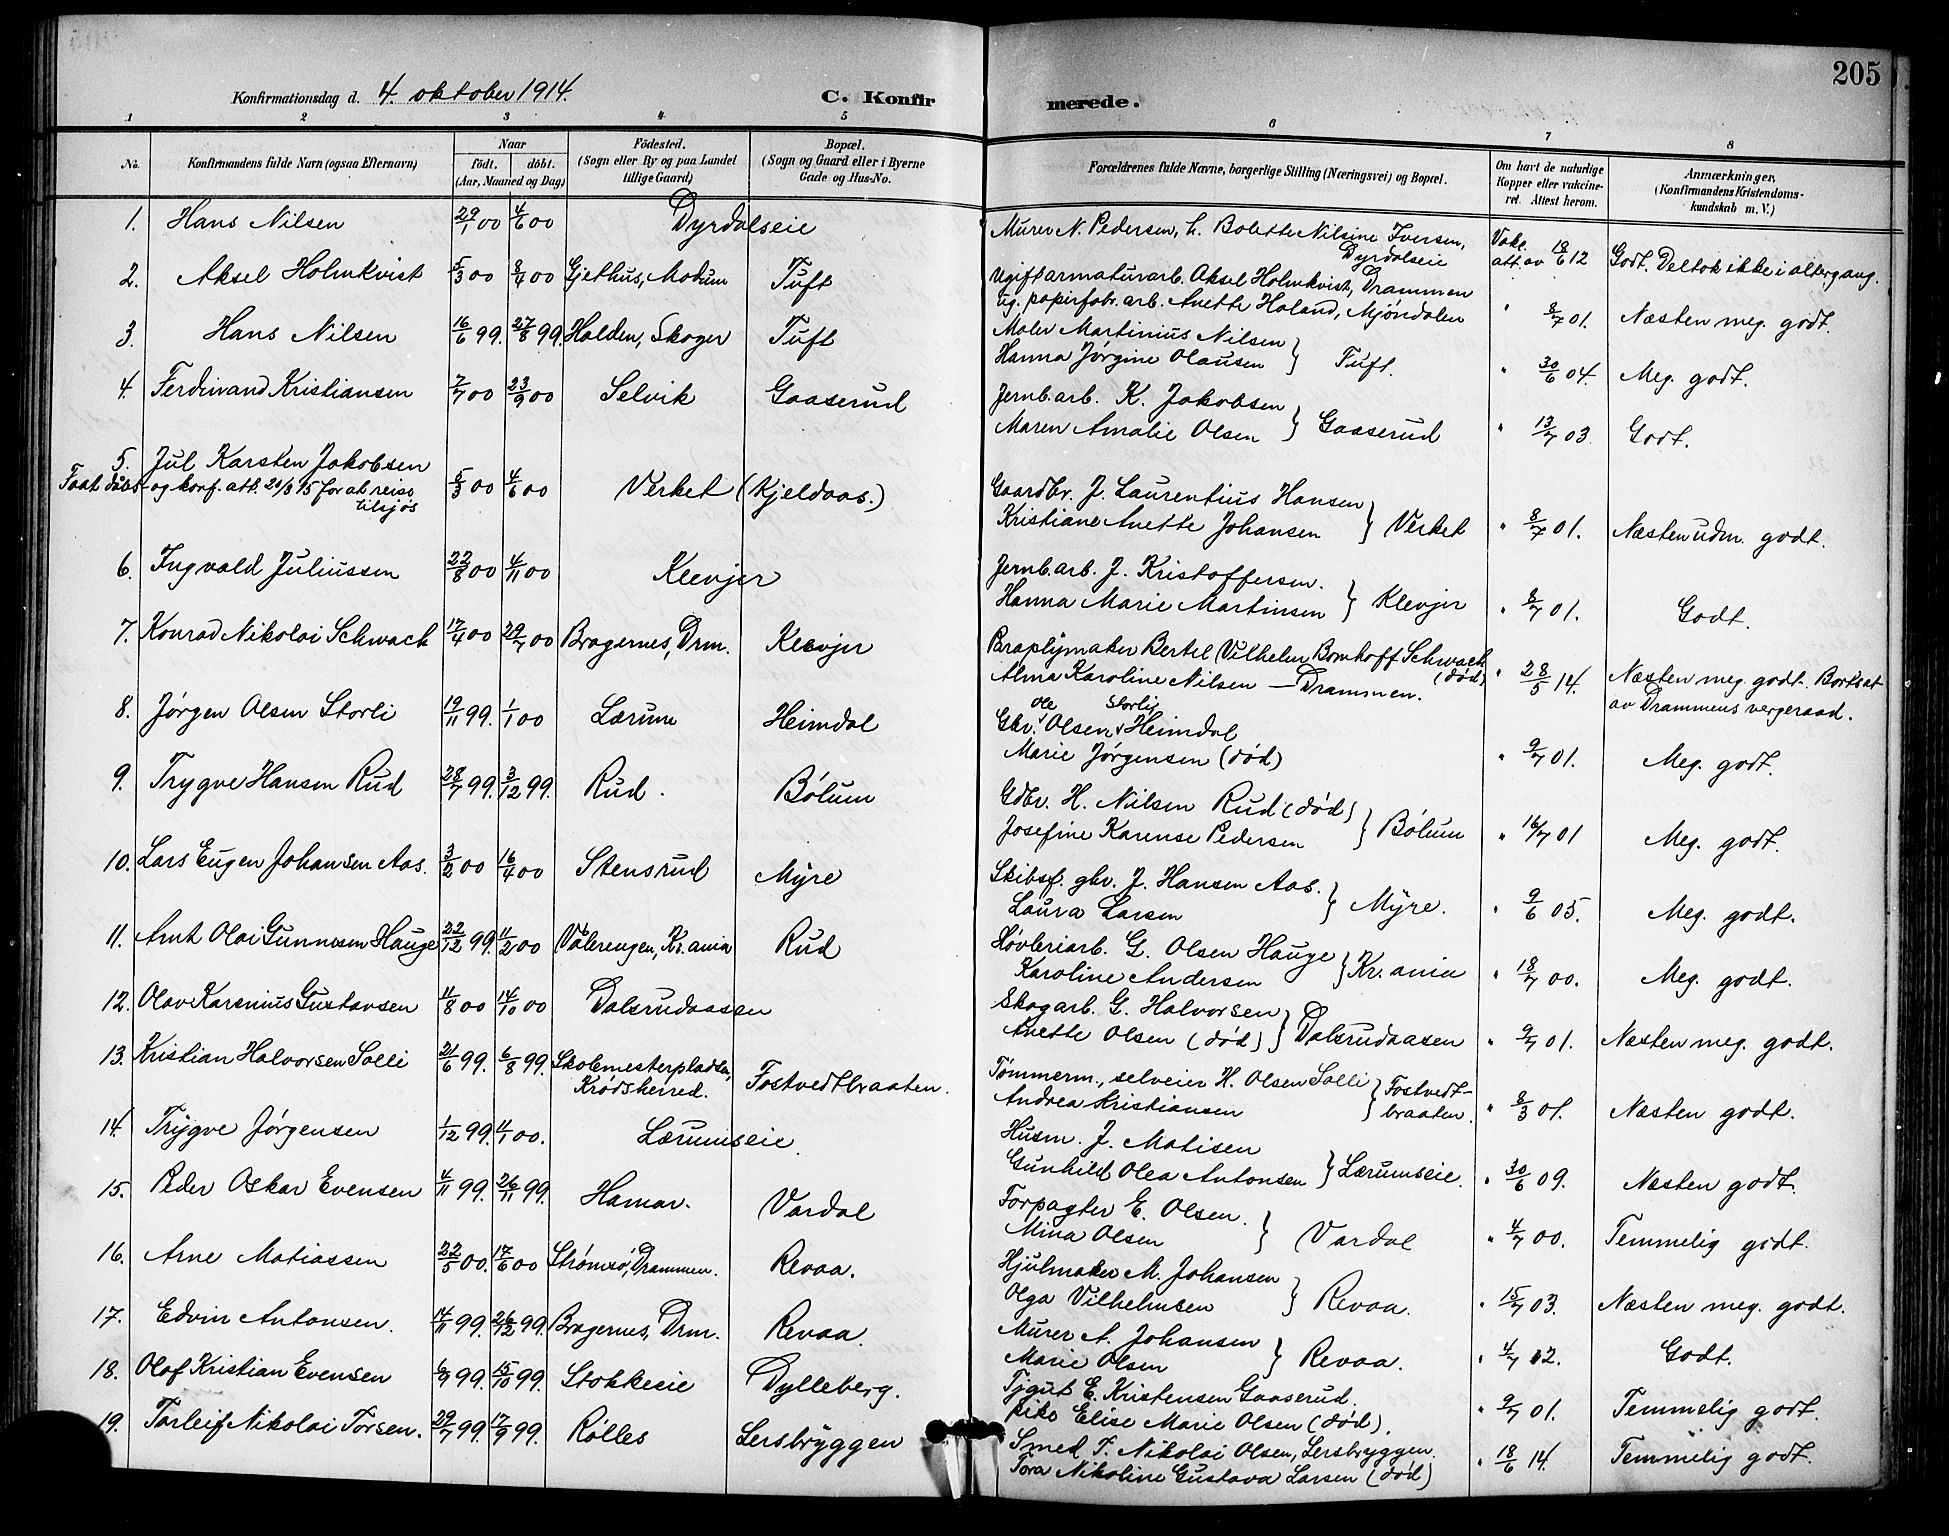 205
Konfirmationsdag d. 4. oktober 1914. C. Konfirmerede.
1 2 3 4 5 6 7 8
No. Konfirmandens fulde Navn (ogsaa Efternavn) Naar født. døbt. (Aar, Maaned og Dag) Fødested. (Sogn eller By og paa Landet tillige Gaard) Bopæl. (Sogn og Gaard eller i Byerne Gade og Hus-No. Forældrenes fulde Navne, borgerlige Stilling (Næringsvei) og Bopæl. Om havt de naturlige Kopper eller vakcineret. Attest herom. Anmærkninger, (Konfirmandens Kristendomskundskab m. V.)
1. Hans Nilsen 29/1 00 4/6 00 Dyrdalseie Murer N. Pedersen, h. Bolette Nilsine Iversen, Dyrdalseie Vakc. att. av 18/6 12 Godt. Deltok ikke i altergang.
2. Aksel Holmkvist 5/3 00 8/4 00 Gjethus, Modum Tuft Ugift armaturarb. Aksel Holmkvist, Drammen
ug. papirfabr.arb. Anette Haland, Mjøndalen " 8/7 01. Næsten meg. godt.
3. Hans Nilsen 16/6 99. 27/8 99. Halden, Skoger Tuft Maler Martinius Nilsen
Hanna Jørgine Olausen } Tuft. " 30/6 04. Meg. godt.
4. Ferdinand Kristiansen 7/7 00 23/9 00 Selvik Gaaserud Jernb.arb. K. Jakobsen
Maren Amalie Olsen } Gaaserud " 13/7 03. Godt.
5. Jul Karsten Jakobsen 5/3 00 4/6 00 Verket (Kjeldaas.) Gaardbr. J. Laurentius Hansen
Faat daabs- og konf. att. 21/3 15 for at reise tilsjøs
Kristiane Anette Johansen } Verket " 8/7 01. Næsten udm. godt.
6. Ingvald Juliussen 22/8 00 4/11 00 Klevjer Jernb.arb. J. Kristoffersen.
Hanna Marie Martinsen } Klevjer " 8/7 01. Godt.
7. Konrad Nikolai Schwach 17/4 00 29/7 00 Bragernes, Drm. Klevjer Paraplymaker Bertel Vilhelm Bomhoff Schwach (død)
Alma Karoline Nilsen — Drammen. " 28/5 14. Næsten meg. godt. Bortsat av Drammens vergeraad.
8. Jørgen Olsen Storli 19/11 99. 1/1 00 Lærum Heimdal Gbr. Ole Olsen Storlig Heimdal
Marie Jørgensen (død) " 9/7 01. Meg. godt.
9. Trygve Hansen Rud 28/7 99. 3/12 99. Rud. Bølum Gdbr. H. Nilsen Rud (død)
Josefine Karense Pedersen } Bølum " 16/7 01 Meg. godt.
10. Lars Eugen Johansen Aas. 3/2 00 16/4 00 Stensrud Myre Skibsf. gbr. J. Hansen Aas.
Laura Larsen } Myre. " 9/6 05. Meg. godt.
11. Arnt Olai Gunnesen Hauge 22/12 99. 11/2 00 Vålerengen, Kr.ania Rud Høvleriarb. G. Olsen Hauge
Karoline Andersen } Kr.ania " 18/7 00. Meg. godt.
12. Olav Karenius Gustavsen 11/8 00 14/10 00 Dalsrudaasen Skogarb. G. Halvorsen
Anette Olsen (død) } Dalsrudaasen " 9/7 01. Næsten meg. godt.
13. Kristian Halvorsen Solli 21/6 99. 6/8 99. Skolemesterpladsen, Krødsherred. Fostvedtbraaten. Tømmerm., selveier H. Olsen Solli
Andrea Kristiansen } Fostvedtbraaten. " 8/3 01. Næsten godt.
14. Trygve Jørgensen 1/12 99. 4/1 00. Lærumseie. Husm. J. Matisen
Gunhild Olea Antonsen } Lærumseie. " 30/6 09. Næsten godt.
15. Peder Oskar Evensen 4/11 99. 26/11 99. Hamar. Vardal Forpagter E. Olsen.
Mina Olsen } Vardal " 4/7 00. Temmelig godt.
16. Arne Matiassen 22/5 00. 17/6 00 Strømsø, Drammen. Revaa. Hjulmaker M. Johansen
Olga Vilhelmsen } Revaa. " 15/7 03. Næsten meg. godt.
17. Edvin Antonsen. 14/11 99. 26/12 99. Bragernes, Drm. Revaa. Murer A. Johansen
Marie Olsen } Revaa. " 4/7 12. Godt.
18. Olaf Kristian Evensen 6/9 99. 15/10 99. Stokkeeie Dylleberg. Tjgut E. Kristensen Gaaserud.
pike Elise Marie Olsen (død). " 9/7 01. Temmelig godt.
19. Torleif Nikolai Torsen. 29/7 99. 17/9 99. Rølles Lersbryggen Smed T. Nikolai Olsen, Lersbryggen.
Tora Nikoline Gustava Larsen (død) " 18/6 14. Temmelig godt.